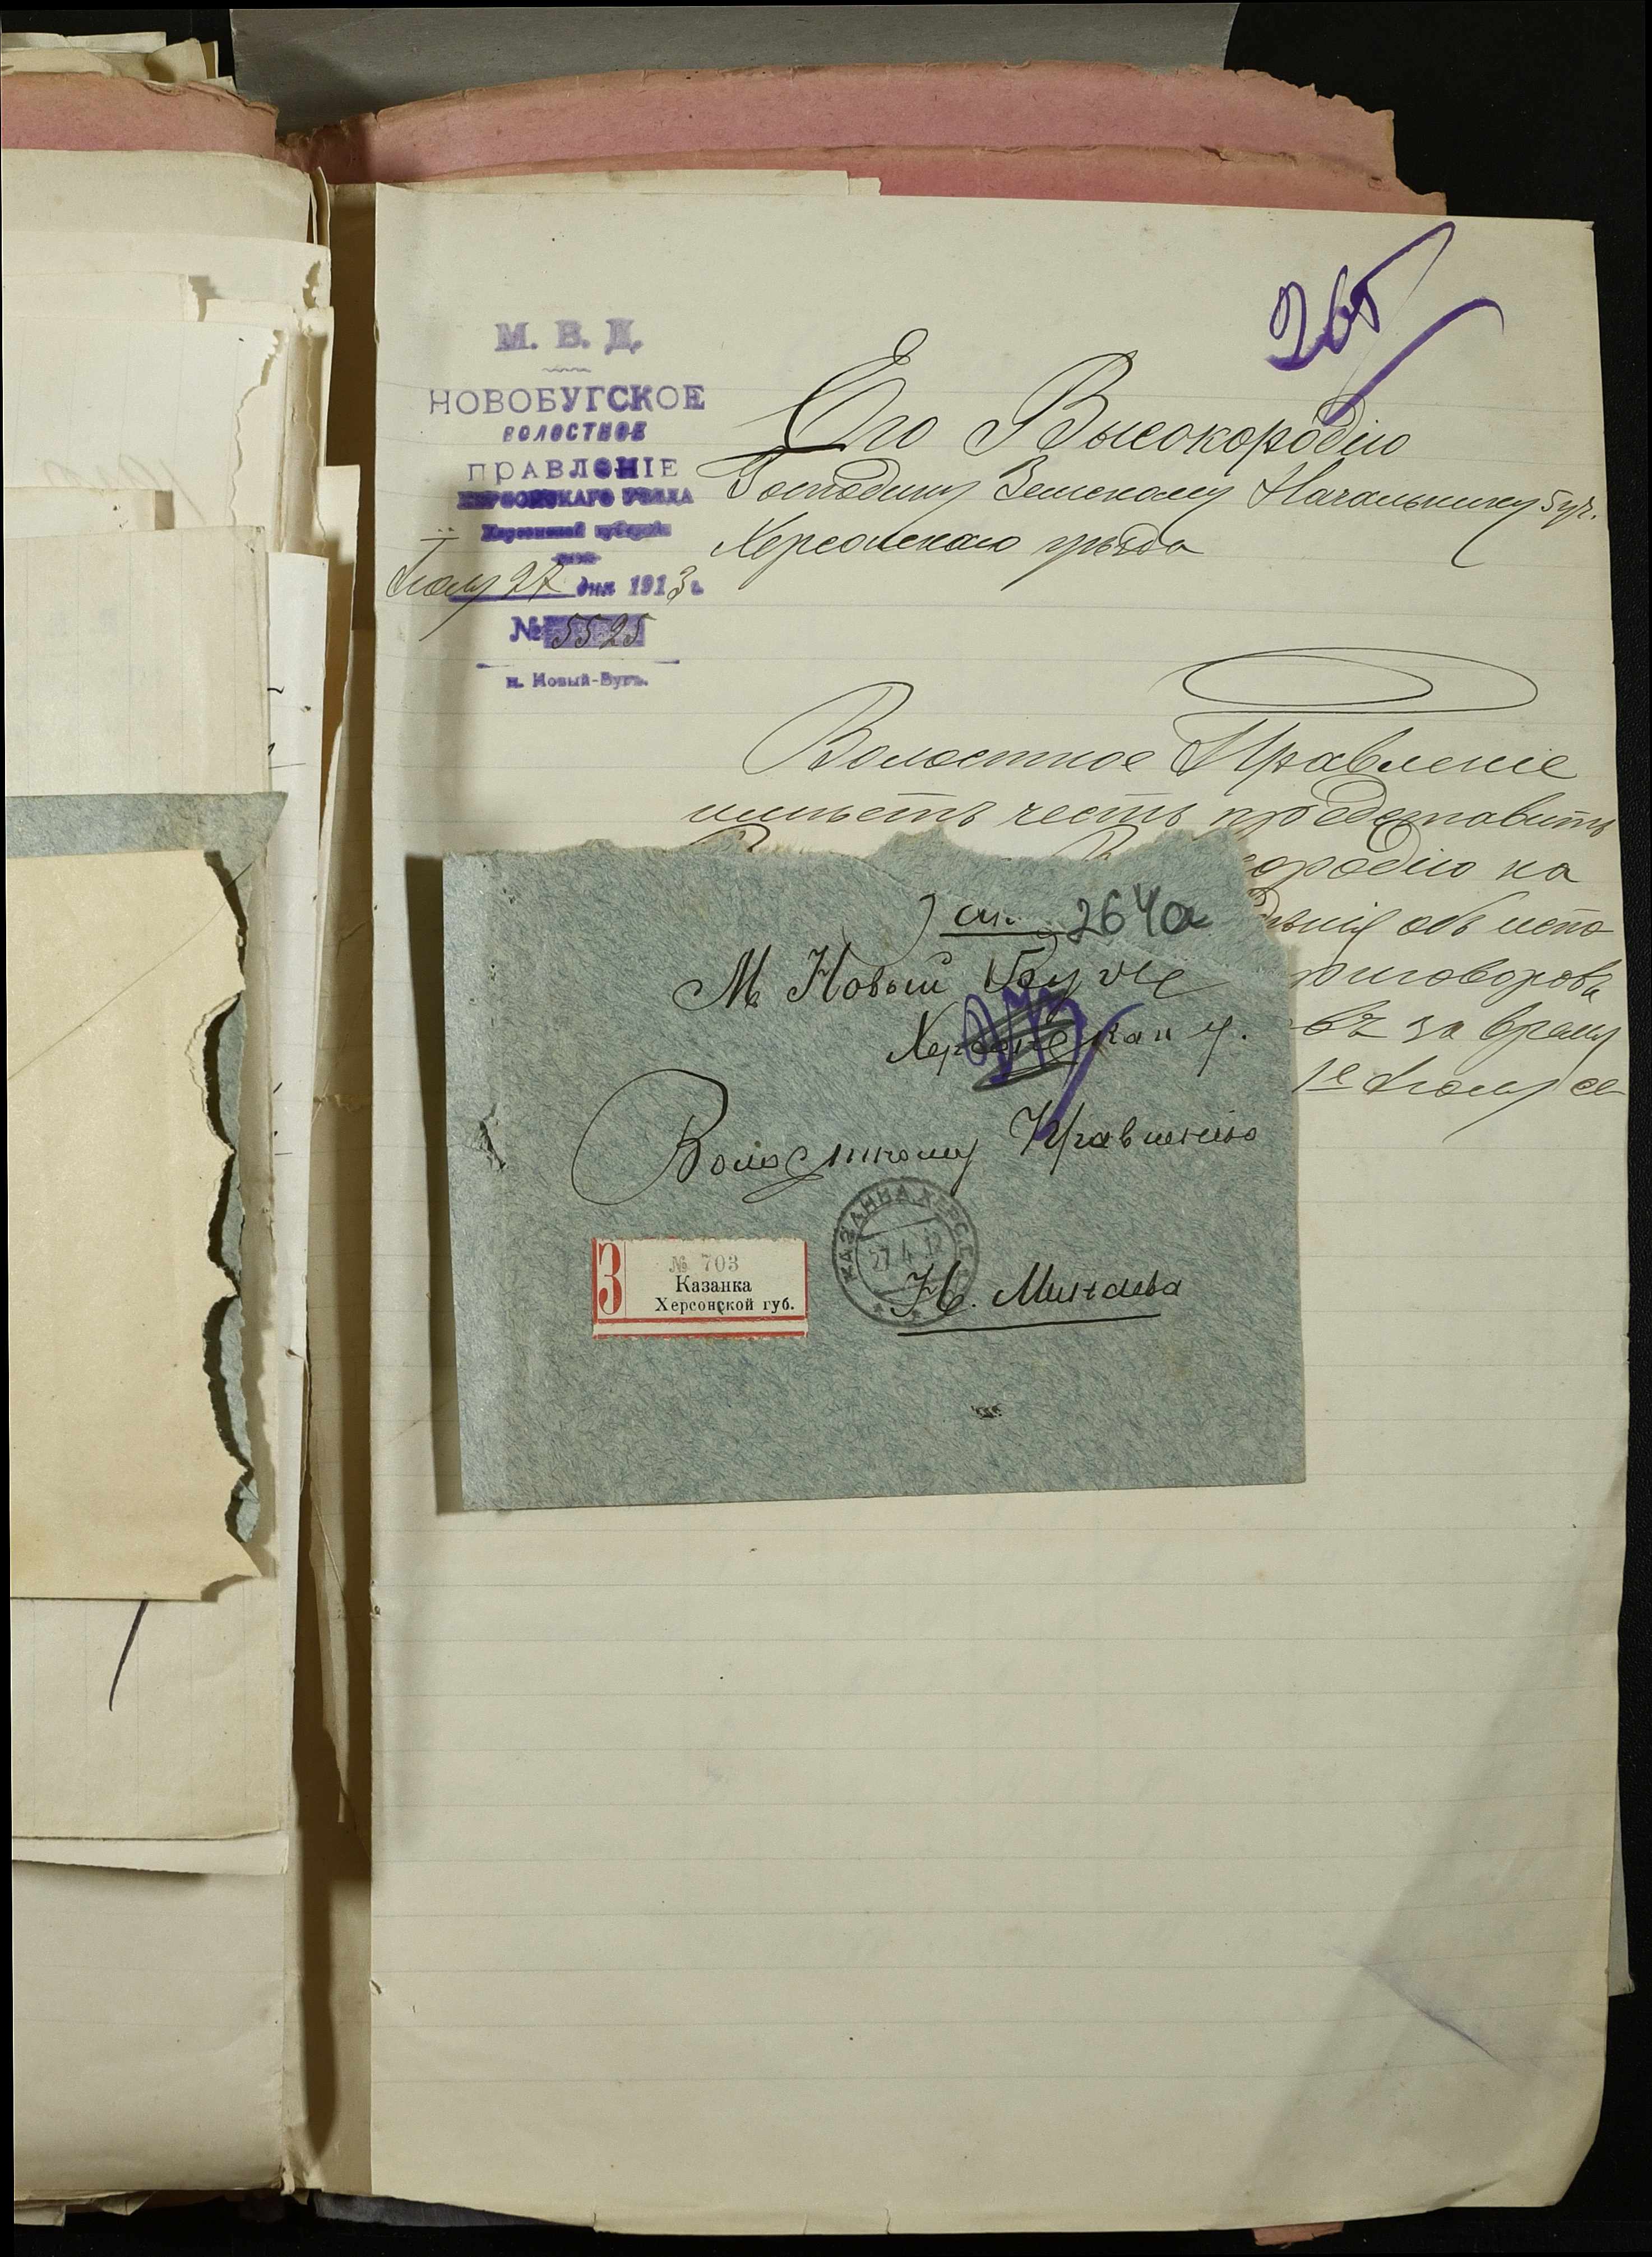 265
М. В. Д.
НОВОБУГСКОЕ
ВОЛОСТНОЕ
ПРАВЛЕНІЕ
ХЕРСОНСКАГО УѢЗДА
Херсонской губерніи
27 дня 1913 г.
№ 5525
м. Новый-Бугъ.
Его Высокородію
Господину Земскому Начальнику 5 уч.
Херсонскаго уѣзда
Волостное Правленіе
имѣетъ честь представить
ородію на
объ испо
риговоровъ
за время
1е
264а
М Новый Буг
Волостному Правленію
Н. Минаева
КАЗАНКА ХЕРС. Г.
27 4 12
З
№ 703
Казанка
Херсонской губ.